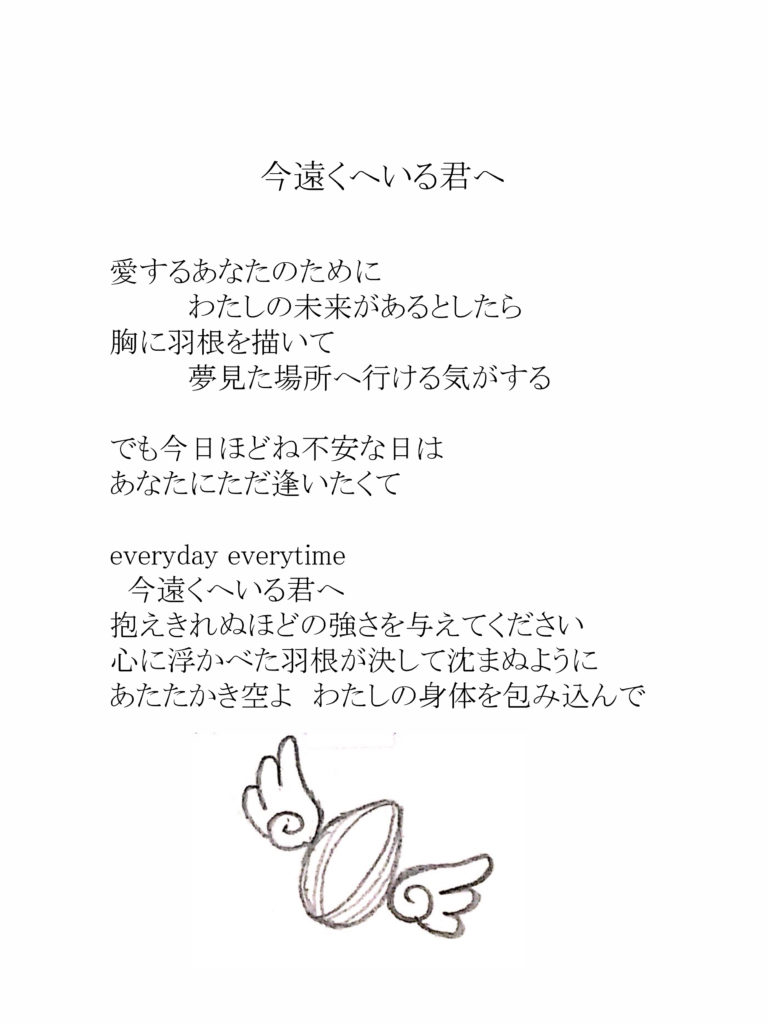 今遠くへいる君へ
愛するあなたのために
わたしの未来があるとしたら
胸に羽根を描いて
夢見た場所へ行ける気がする
でも今日ほどね不安な日は
あなたにただ逢いたくて
everyday everytime
今遠くへいる君へ
抱えきれぬほどの強さを与えてください
心に浮かべた羽根が決して沈まぬように
あたたかき空よ　わたしの身体を包み込んで